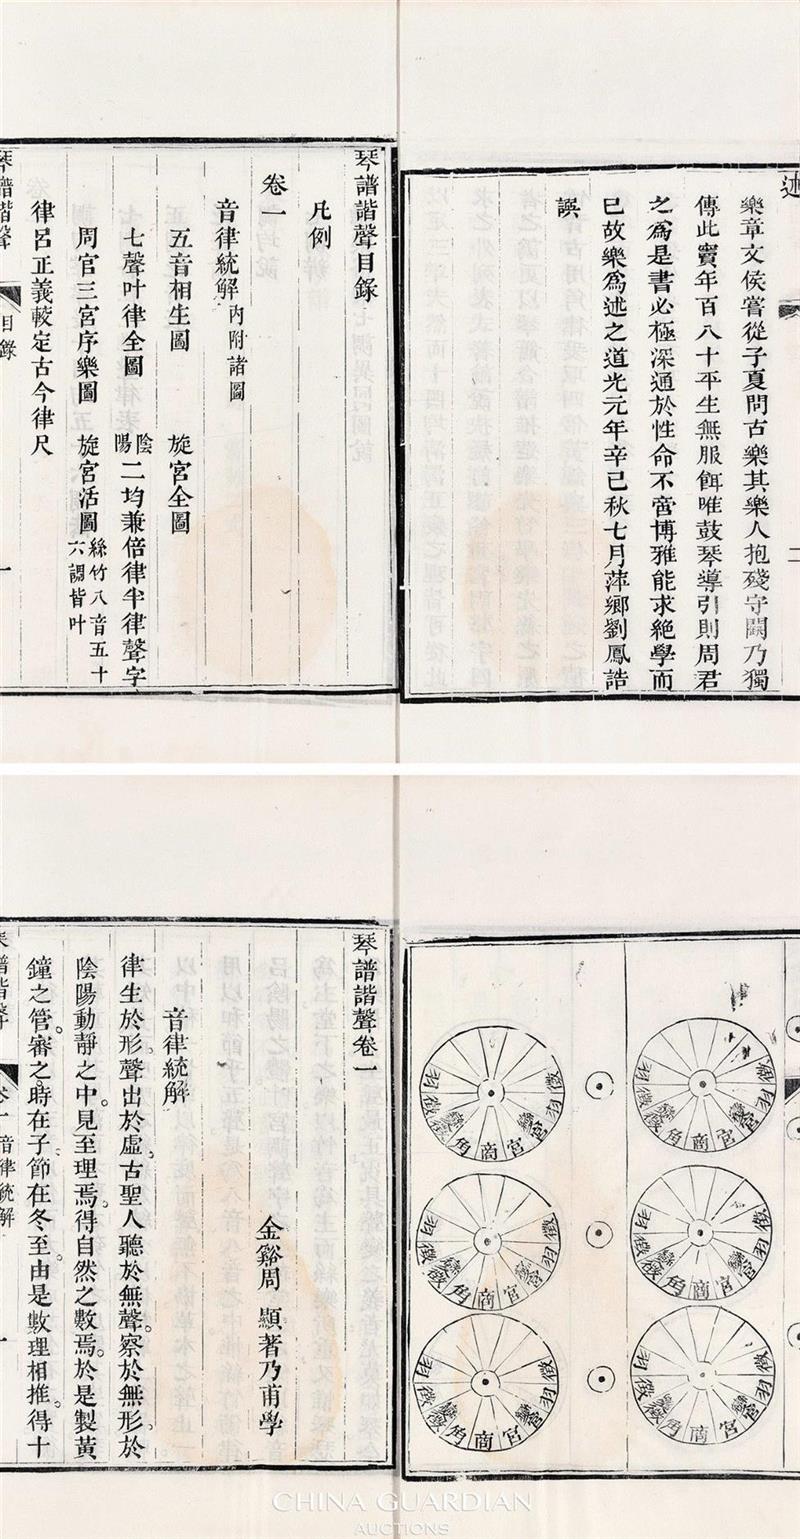 述
樂章文侯嘗從子夏問古樂其樂人抱殘守闕乃獨
傳此竇年百八十平生無服餌唯鼓琴導引則周君
之為是書必極深通於性命不啻博雅能求絶學而
已故樂為述之道光元年辛巳秋七月萍鄉劉鳳誥
譔
二
琴譜諧聲目錄
凡例
卷一
音律統解 内附諸圖
五音相生圖 旋宮全圖
七聲叶律全圖 陰陽二均兼倍律半律聲字
周官三宮序樂圖 旋宮活圖 絲竹八音五十六調皆叶
律呂正義較定古今律尺
琴譜諧聲 目錄 一
徵 羽 宮 變 商 角 變 徵 羽
徵 羽 宮 變 商 角 變 徵 羽
羽 徵 宮 商 角 變 徵 羽
羽 徵 宮 商 角 變 徵 羽
徵 羽 變 宮 商 角 變 徵 羽
徵 羽 變 宮 商 角 變 徵 羽
琴譜諧聲卷一
金谿周 顯著乃甫學
音律統解
律生於形聲出於虛古聖人聽於無聲察於無形於
陰陽動靜之中見至理焉得自然之數焉於是製黃
鐘之管審之時在子節在冬至由是數理相推得十
琴譜諧聲 卷一 音律統解 一
CHINA GUARDIAN
AUCTIONS